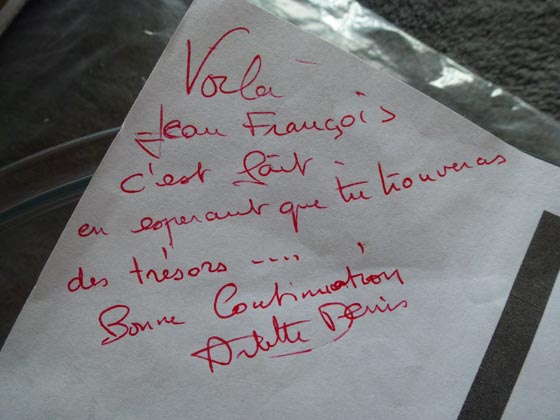 Voilà
Jean François
c'est fait.
en esperant que tu trouveras
des trésors ....
Bonne Continuation
Arlette Denis